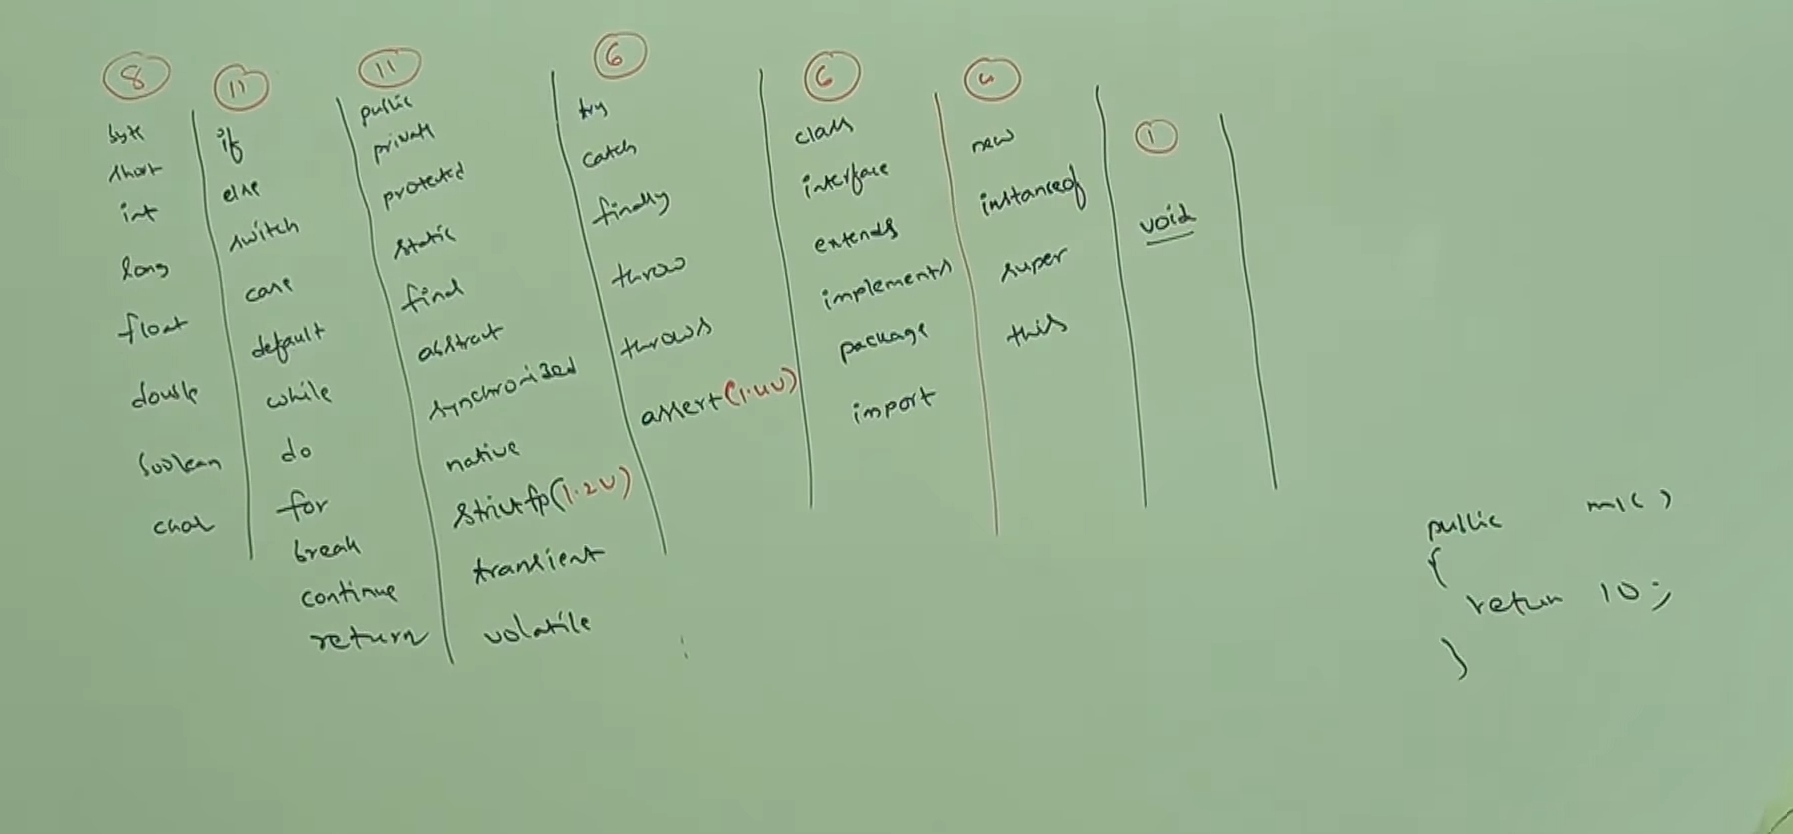 8
byte
short
int
long
float
double
boolean
char
11
if
else
switch
case
default
while
do
for
break
continue
return
11
public
private
protected
static
final
abstract
synchronized
native
strictfp(1.2v)
transient
volatile
6
try
catch
finally
throw
throws
assert(1.4v)
6
class
interface
extends
implements
package
import
4
new
instanceof
super
this
1
void
public m1( )
{
return 10;
}